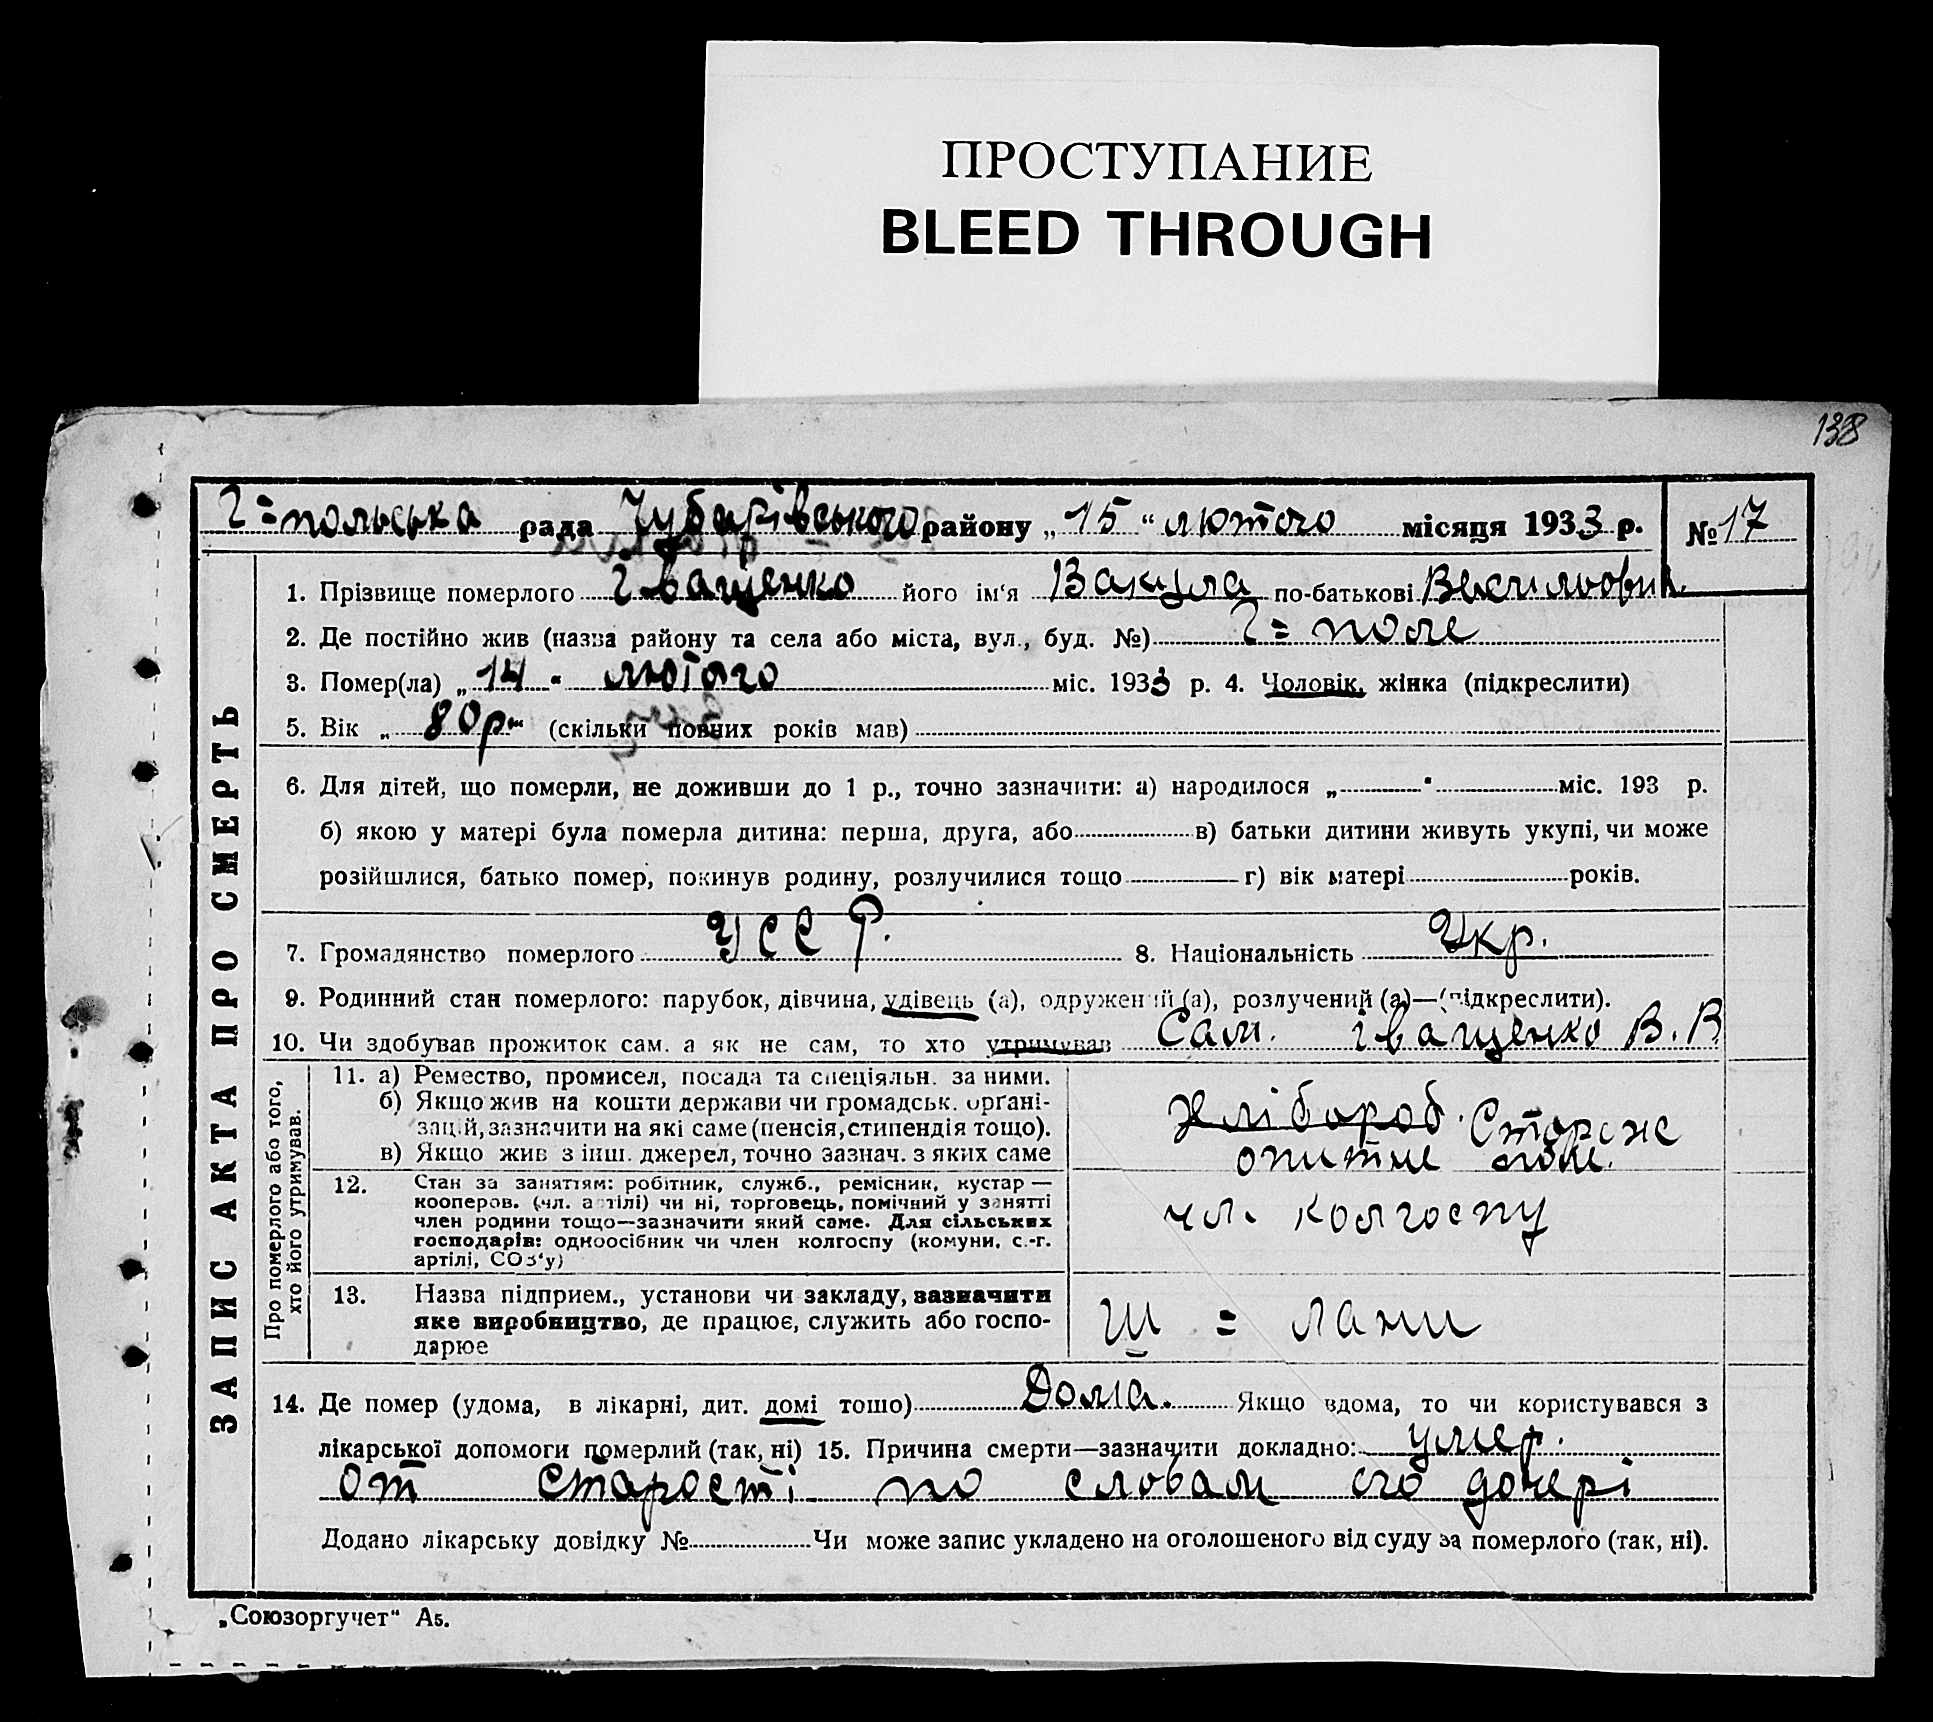 ПРОСТУПАНИЕ
BLEED THROUGH
138
Г=польська рада Чубарівського району „15“ лютого місяця 1933 р. № 17
1. Прізвище померлого Іващенко його ім‘я Вакула по-батькові
2. Де постійно жив (назва району та села або міста, вул., буд. №) Г=поле
3. Помер(ла) „14“ лютого міс. 1933 р. 4. Чоловік, жінка (підкреслити)
5. Вік „80р“ (скільки повних років мав)
6. Для дітей, що померли, не доживши до 1 р., точно зазначити: а) народилося „ “ міс. 193 р.
б) якою у матері була померла дитина: перша, друга, або в) батьки дитини живуть укупі, чи може
розійшлися, батько помер, покинув родину, розлучилися тощо г) вік матері років.
7. Громадянство померлого УССР. 8. Національність Укр.
9. Родинний стан померлого: парубок, дівчина, удівець (а), одружений (а), розлучений (а)—(підкреслити).
10. Чи здобував прожиток сам. а як не сам, то хто утримував Сам. Іващенко В. В
ЗАПИС АКТА ПРО СМЕРТЬ
Про померлого або того,
хто його утримував.
11. а) Ремество, промисел, посада та спеціяльн. за ними.
б) Якщо жив на кошти держави чи громадськ. орґані-
зацій, зазначити на які саме (пенсія, стипендія тощо).
в) Якщо жив з інш. джерел, точно зазнач. з яких саме
Хлібороб. Стороже
опитне поле.
12. Стан за заняттям: робітник, служб., ремісник, кустар —
кооперов. (чл. артілі) чи ні, торговець, помічний у занятті
член родини тощо—зазначити який саме. Для сільських
господарів: одноосібник чи член колгоспу (комуни, с.-г.
артілі, СОЗ‘у)
чл. колгоспу
13. Назва підприєм., установи чи закладу, зазначити
яке виробництво, де працює, служить або госпо-
дарює
Ш = лани
14. Де помер (удома, в лікарні, дит. домі тощо) Дома. Якщо вдома, то чи користувався з
лікарської допомоги померлий (так, ні) 15. Причина смерти—зазначити докладно: умер.
от старості по словам его дочері
Додано лікарську довідку № Чи може запис укладено на оголошеного від суду за померлого (так, ні).
„Союзоргучет“ А5.